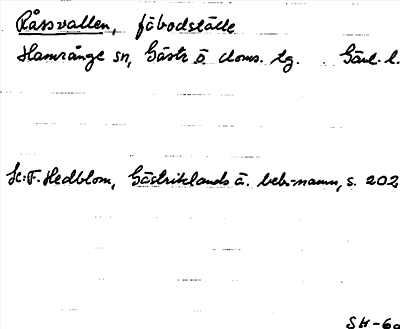 Råssvallen, fäbodställe
Hamrånge sn, Gästr ö doms. tg. Gävl. l.
Se: F. Hedblom, Gästriklands ä. beb:namn, s. 202
SH-60